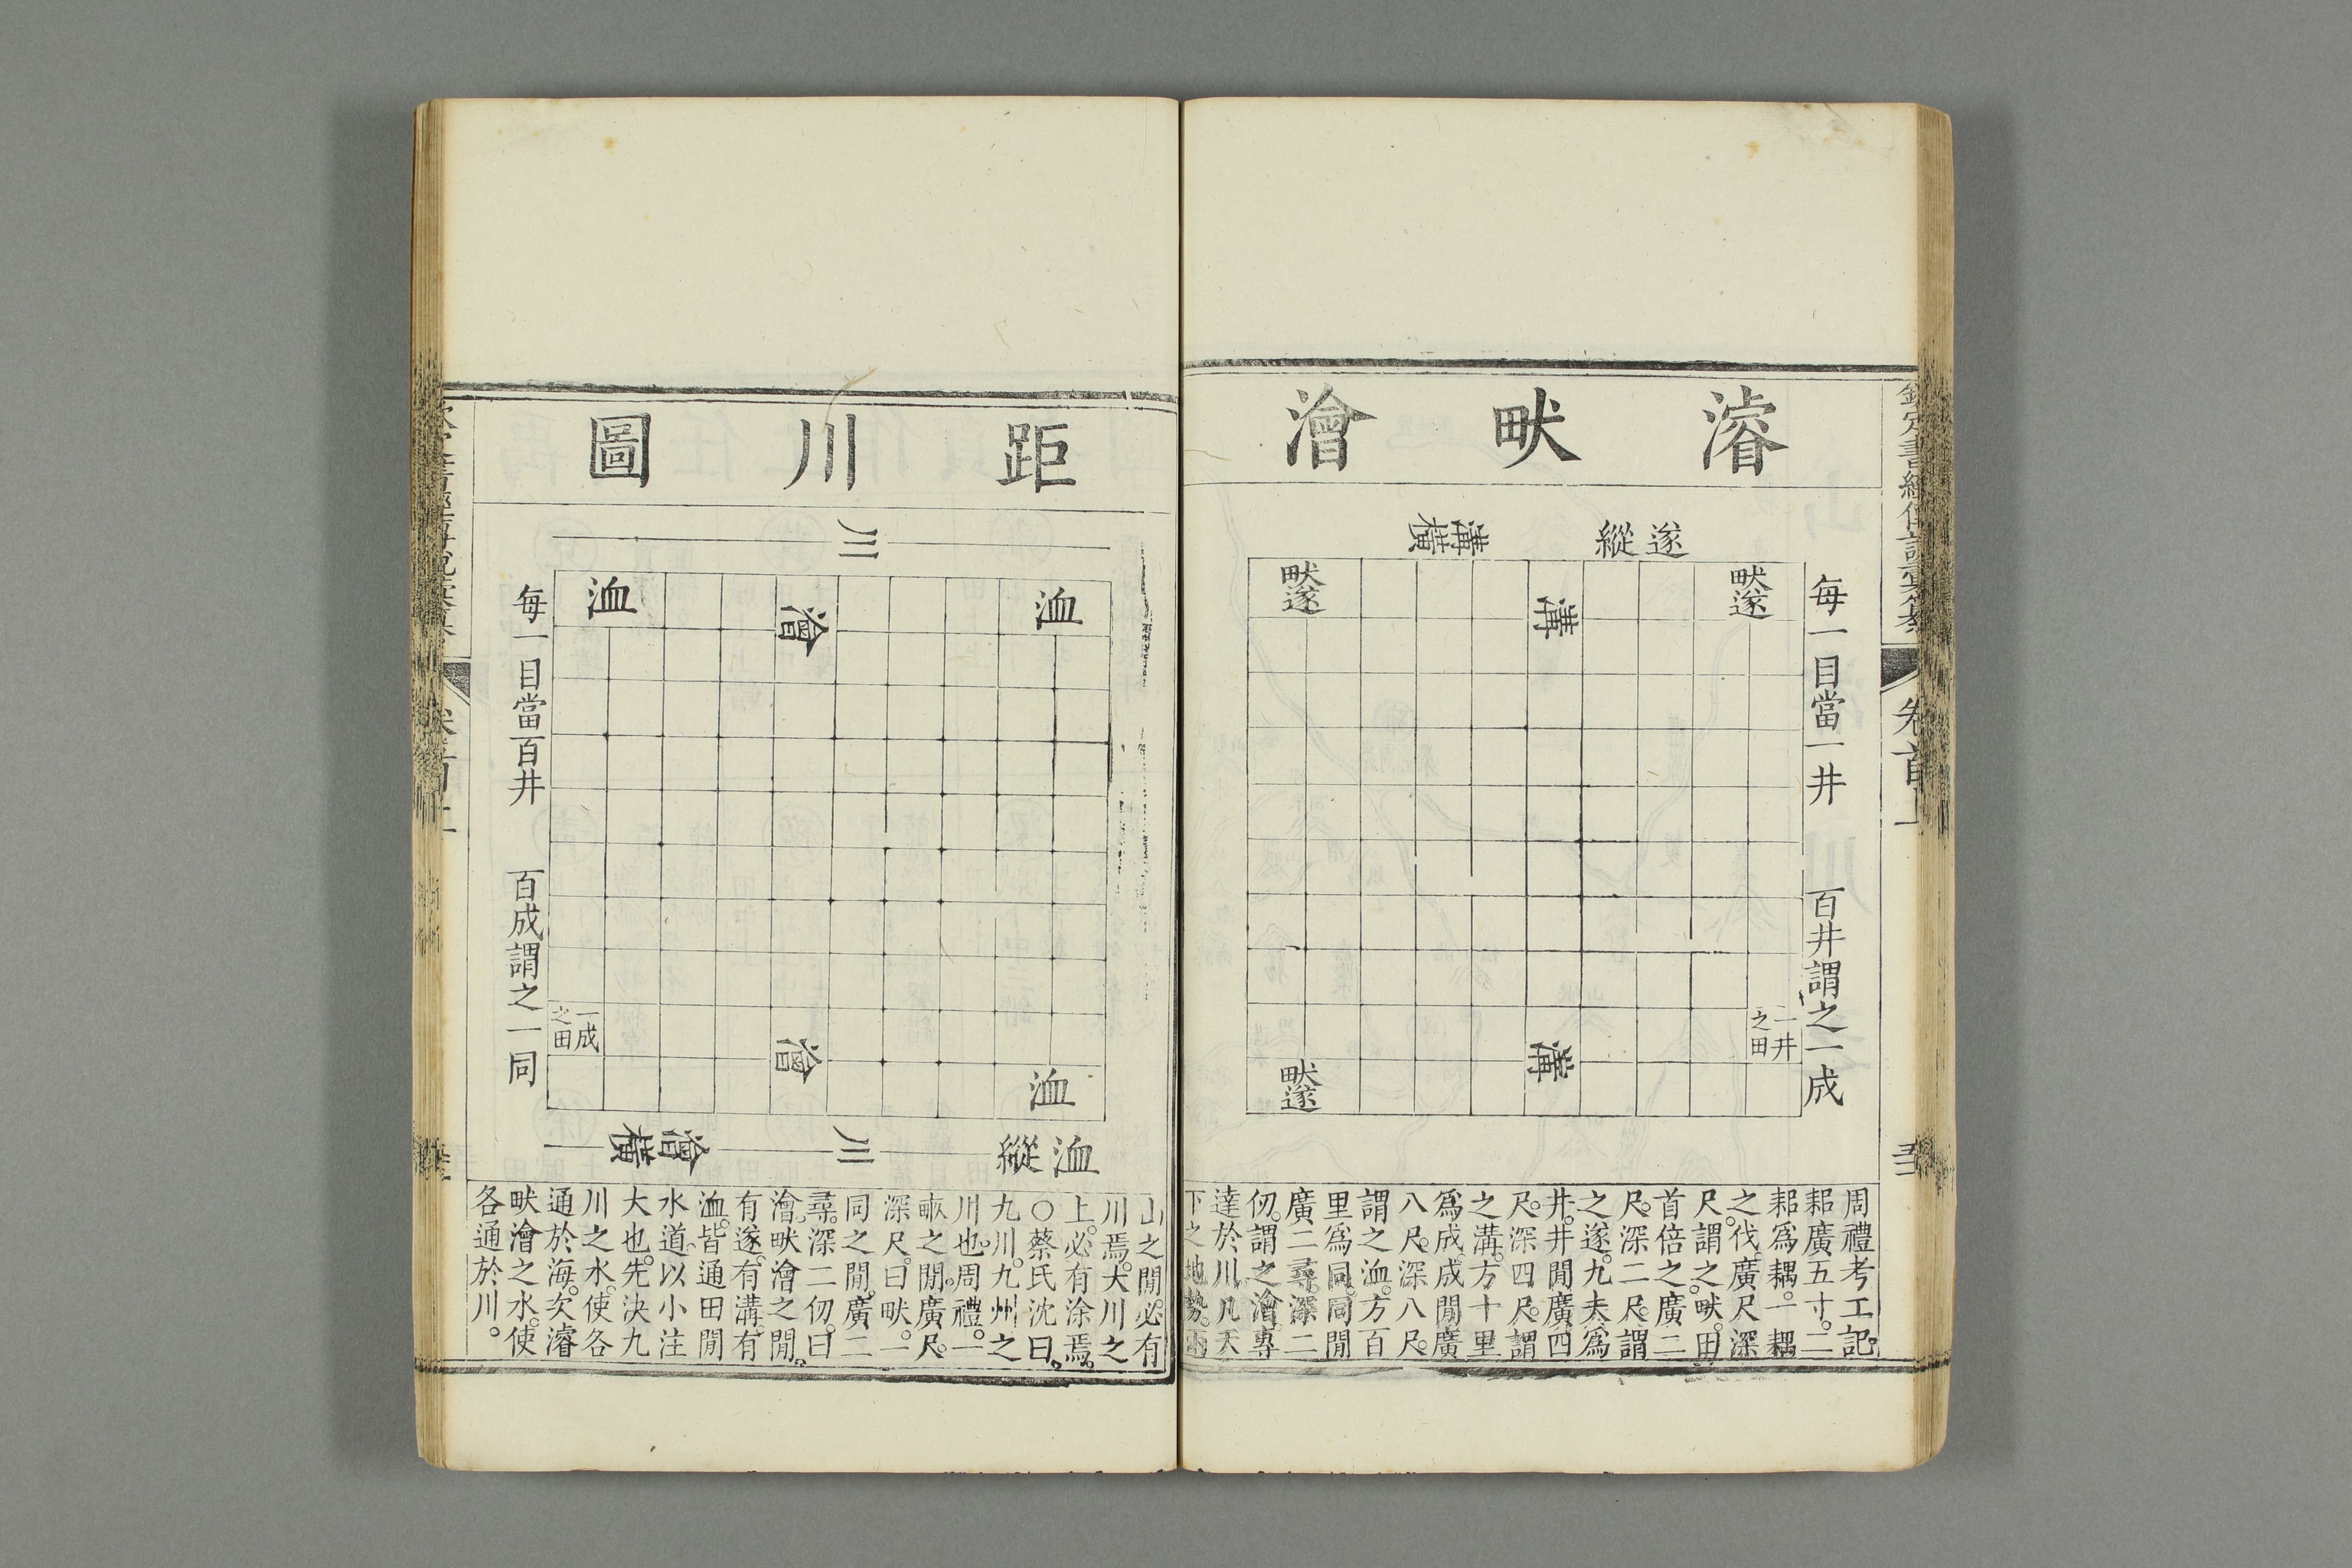 欽定書經傳說彙纂
卷首上
濬畎澮
遂縱
溝橫
每一目當一井
百井謂之一成
畎遂
溝
畎遂
一井之田
溝
畎遂
周禮考工記。
耜廣五寸。二
耜爲耦。一耦
之伐。廣尺深
尺。謂之畎。田
首倍之。廣二
尺。深二尺。謂
之遂。九夫爲
井。井閒廣四
尺。深四尺。謂
之溝。方十里
爲成。成閒廣
八尺。深八尺。
謂之洫。方百
里爲同。同閒
廣二尋。深二
仞。謂之澮。專
達於川。凡天
下之地勢。兩
距川圖
川
洫
澮
洫
洫
澮
一成之田
每一目當百井
百成謂之一同
洫縱
川
澮橫
山之閒。必有
川焉。大川之
上。必有涂焉。
○蔡氏沈曰。
九川。九州之
川也。周禮。一
畝之閒。廣尺。
深尺。曰畎。一
同之閒。廣二
尋。深二仞。曰
澮。畎澮之閒。
有遂。有溝。有
洫。皆通田閒
水道。以小注
大也。先決九
川之水。使各
通於海。次濬
畎澮之水。使
各通於川。